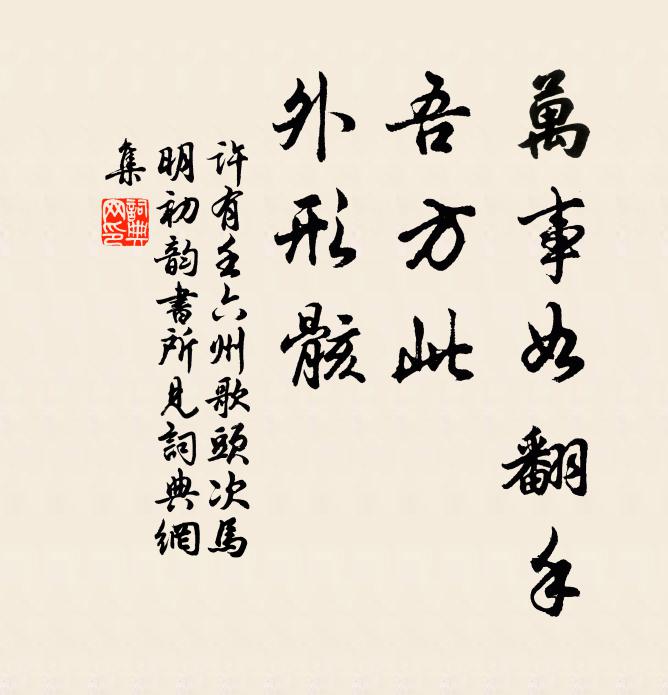 萬事如翻手
吾方此
外形骸
許有壬六州歌頭次馬
明初韵書所見詞典網
集
詞典網印